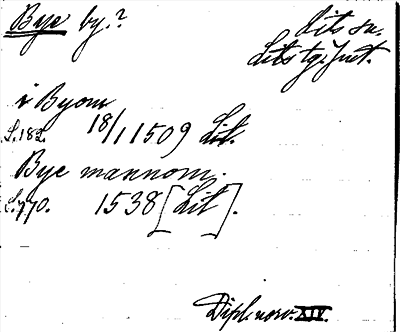 Bye by.?
Lits sn.
Lits tg. Jmt.
i Byom
S.182. 18/1 1509 Lit.
Bye mannom.
S.770. 1538 [Lit].
Dipl. norv. XIV.